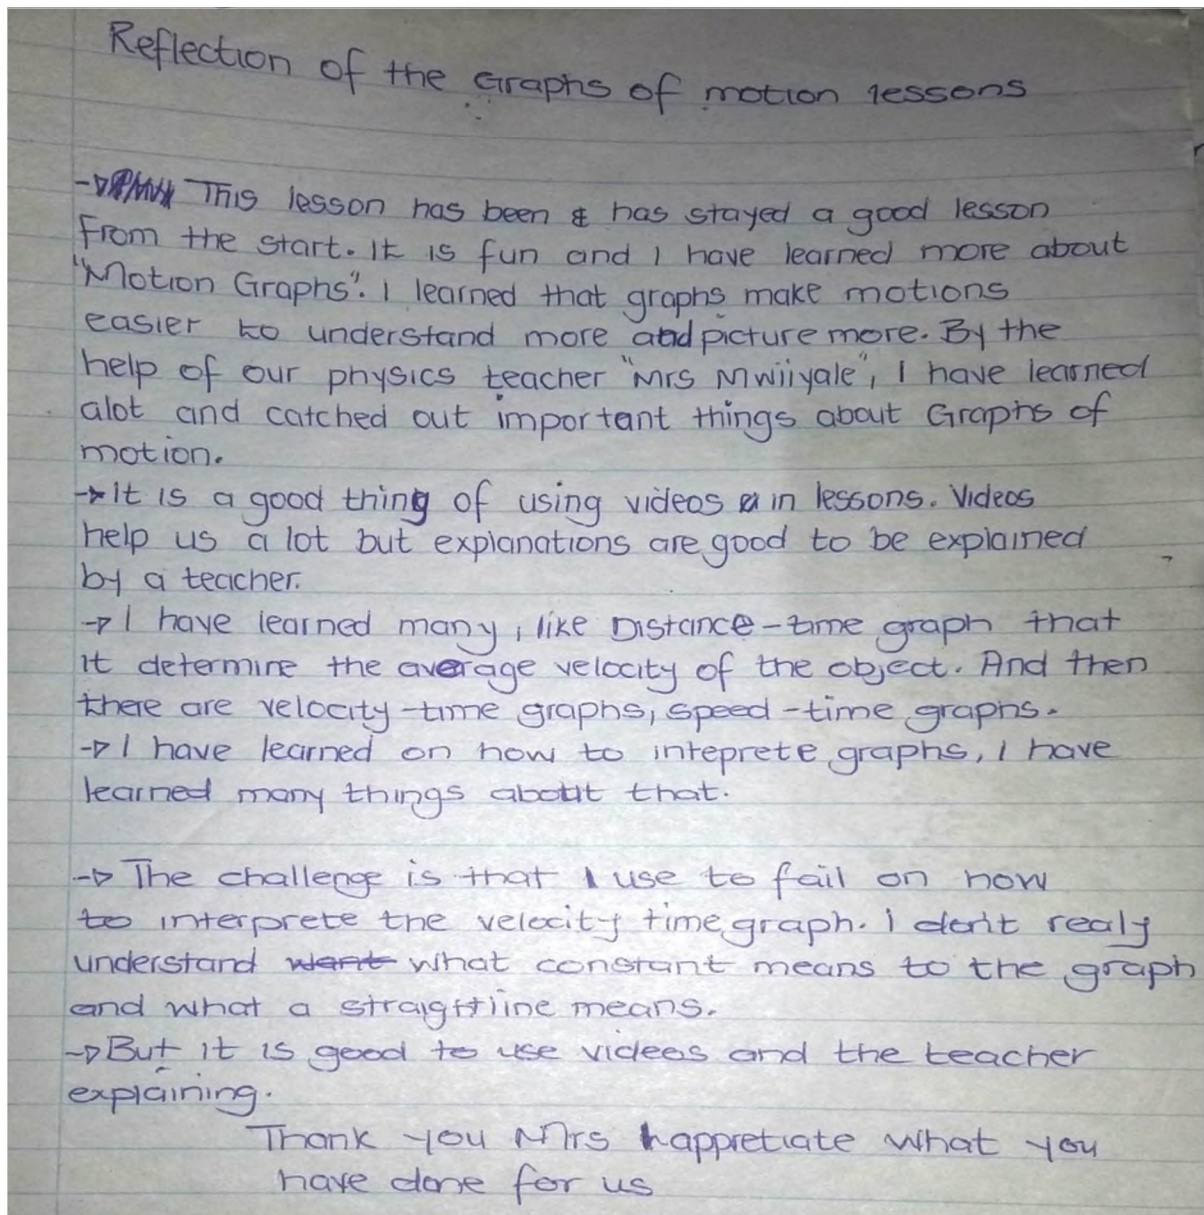 Reflection of the Graphs of motion lessons
→ This lesson has been & has stayed a good lesson
from the start. It is fun and I have learned more about
"Motion Graphs". I learned that graphs make motions
easier to understand more and picture more. By the
help of our physics teacher "Mrs Mwiiyale", I have learned
alot and catched out important things about Graphs of
motion.
→ It is a good thing of using videos in lessons. Videos
help us a lot but explanations are good to be explained
by a teacher.
→ I have learned many, like Distance-time graph that
it determine the average velocity of the object. And then
there are velocity-time graphs, speed-time graphs.
→ I have learned on how to inteprete graphs, I have
learned many things about that.
→ The challenge is that I use to fail on how
to interprete the velocity time graph. I don't realy
understand want what constant means to the graph
and what a straigttline means.
→ But it is good to use videos and the teacher
explaining.
Thank you Mrs I appretiate what you
have done for us